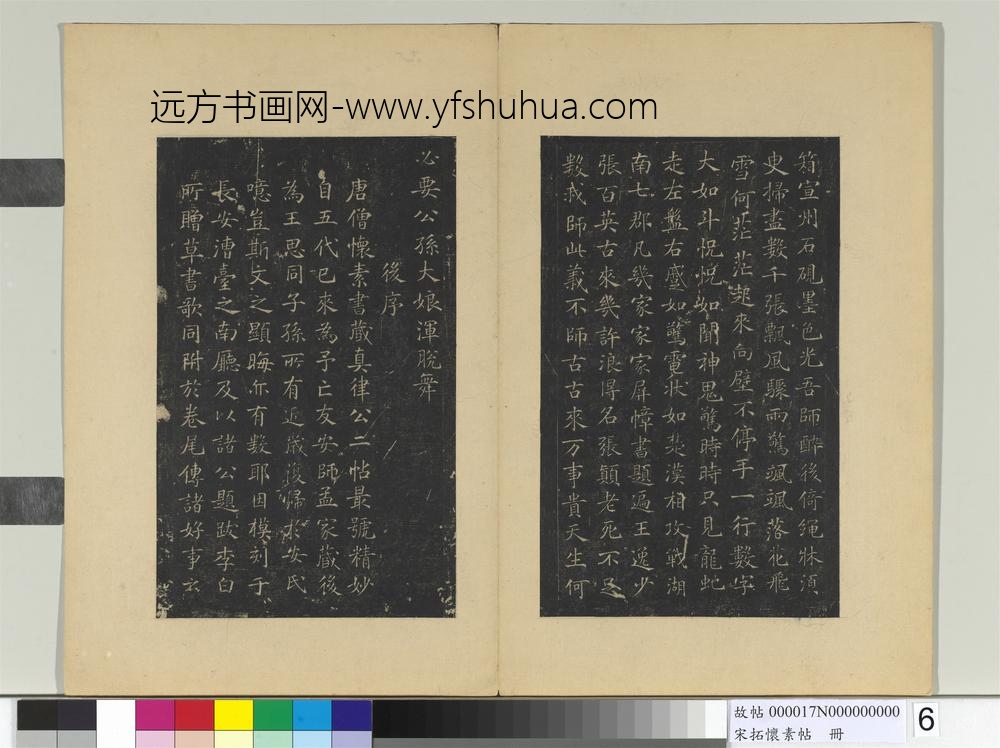 远方书画网-www.yfshuhua.com
箱宣州石硯墨色光吾師醉後倚繩牀須
史掃盡數千張飄風驟雨驚颯颯落花飛
雪何茫茫起來向壁不停手一行數字
大如斗怳怳如聞神鬼驚時時只見龍虵
走左盤右蹙如驚電狀如楚漢相攻戰湖
南七郡凡幾家家家屏幛書題遍王逸少
張百英古來幾許浪得名張顛老死不足
數我師此義不師古古來万事貴天生何
必要公孫大娘渾脫舞
後序
唐僧懷素書藏真律公二帖最號精妙
自五代已來為予亡友安師孟家藏後
為王思同子孫所有近歲復歸於安氏
噫豈斯文之顯晦亦有數耶因模刻于
長安漕臺之南廳及以諸公題跋李白
所贈草書歌同附於卷尾傳諸好事云
故帖 000017N000000000
宋拓懷素帖 冊
6